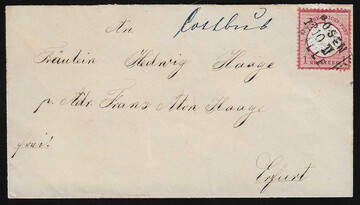 An Cottbus
Fräulein Hedwig Haage
p. Adr. Franz Ant. Haage
frei!
Erfurt
POSEN
1